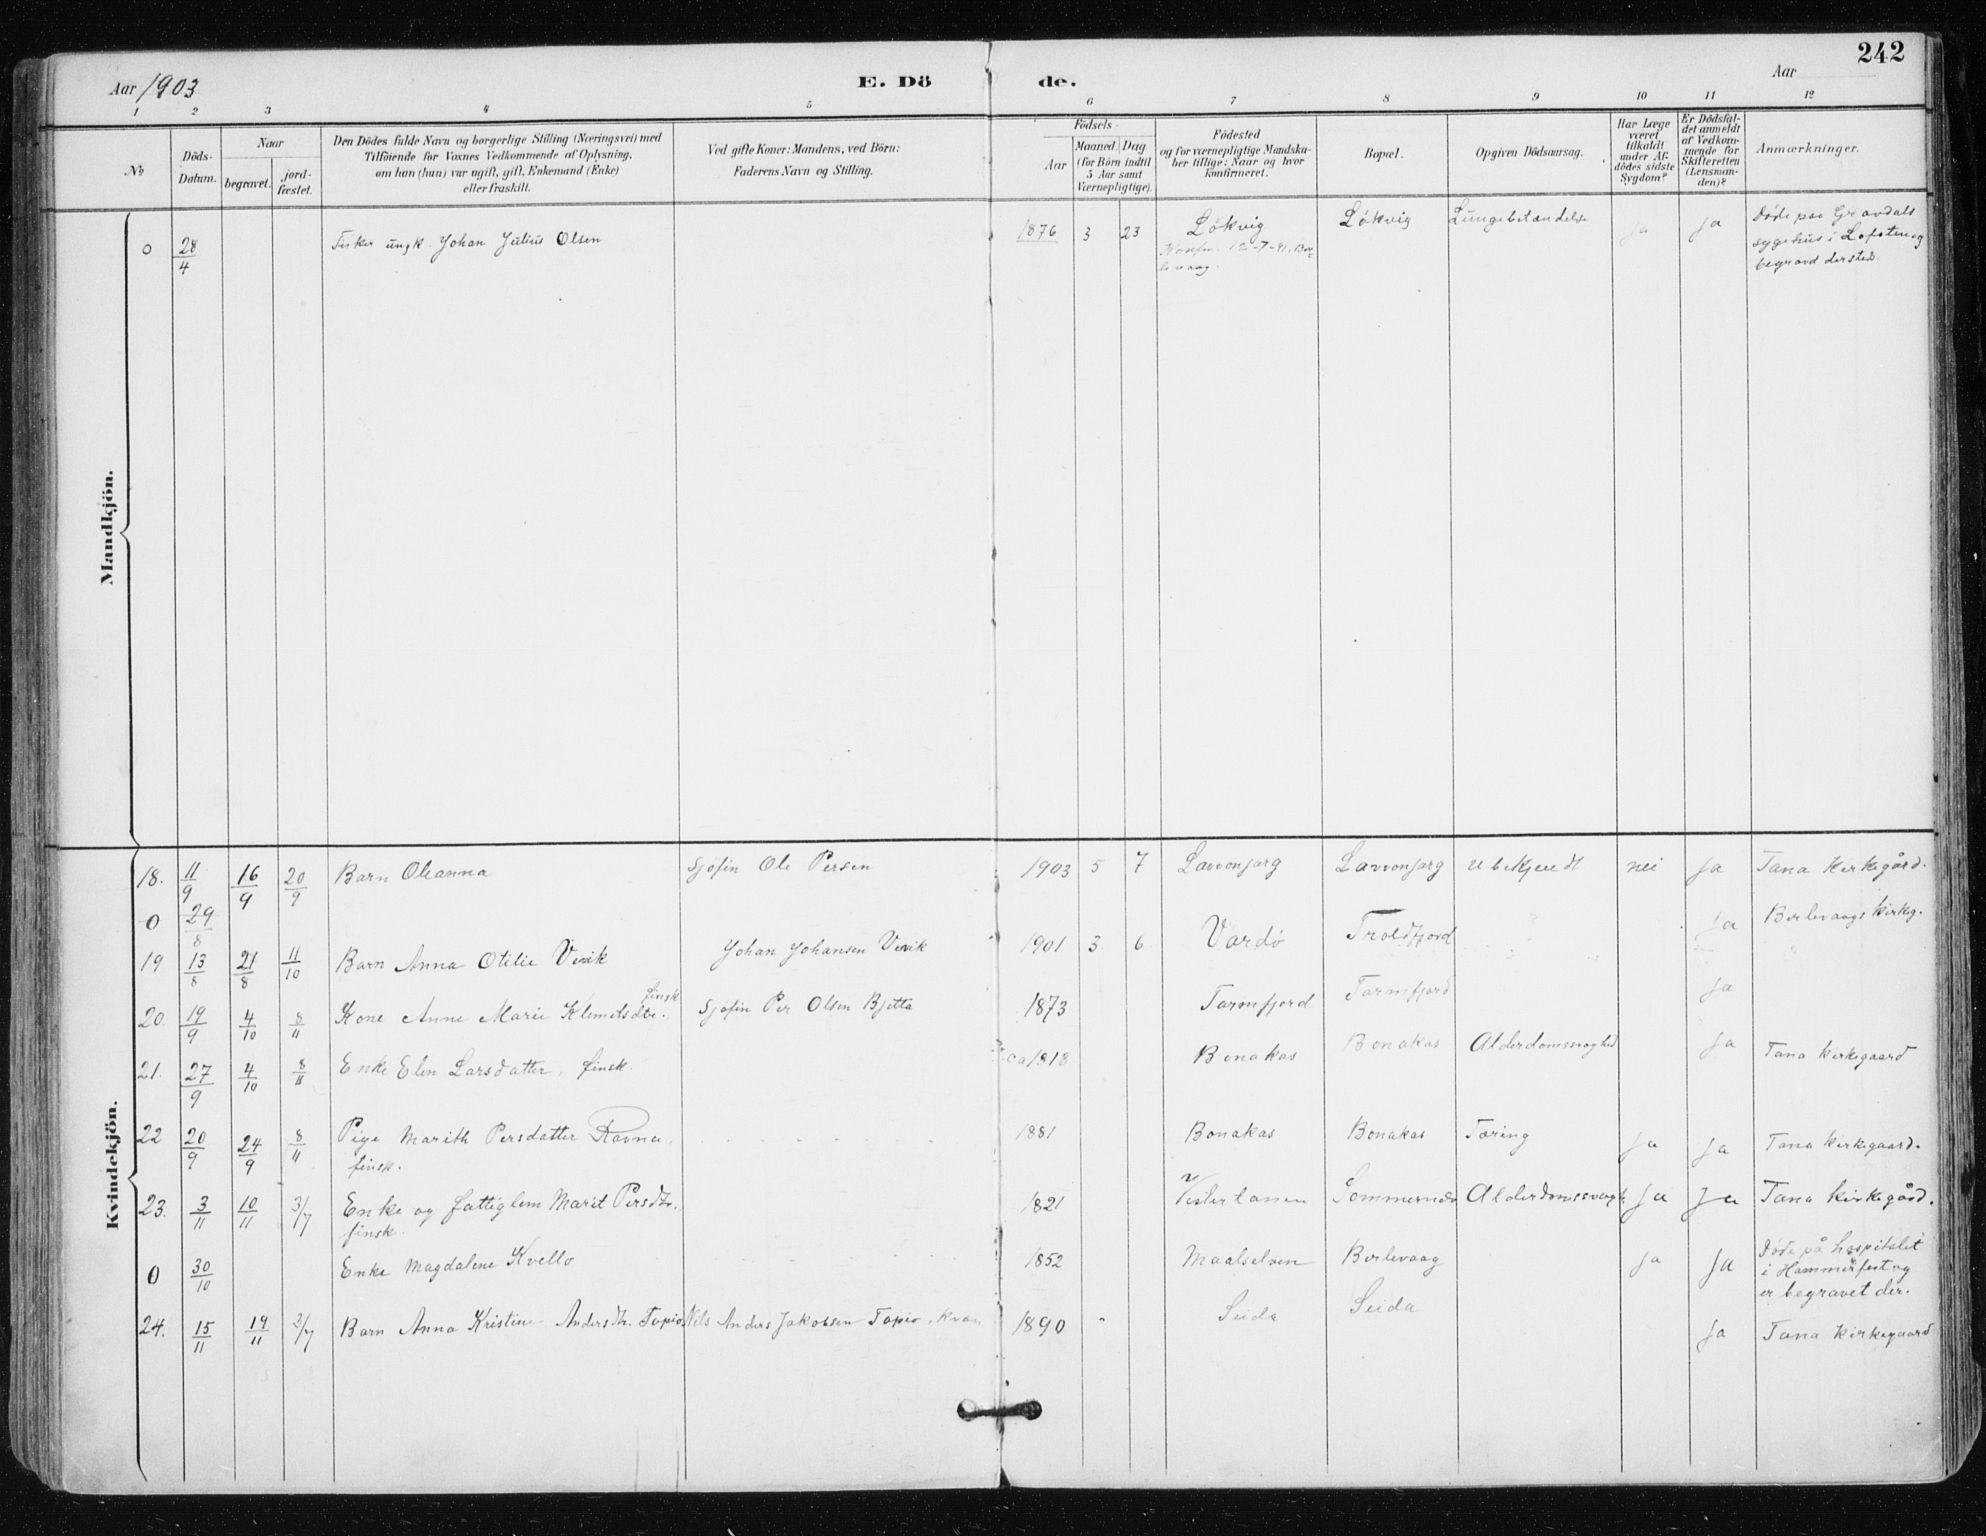 242
Aar 1903
E. Dö de.
Aar
1 2 3 4 5 6 7 8 9 10 11 12
No
Döds-Datum.
Naar
begravet.
jord-fæstet.
Den Dödes fulde Navn og borgerlige Stilling (Næringsvei) med
Tilföiende for Voxnes Vedkommende af Oplysning,
om han (hun) var ugift, gift, Enkemand (Enke)
eller fraskilt.
Ved gifte Koner: Mandens, ved Börn:
Faderens Navn og Stilling.
Födsels-
Aar
Maaned. Dag
(for Börn indtil
5 Aar samt
Værnepligtige).
Födested
og for værnepligtige Mandska-
ber tillige: Naar og hvor
konfirmeret.
Bopæl.
Opgiven Dödsaarsag.
Har Læge
været
tilkaldt
under Af-
dödes sidste
Sygdom?
Er Dödsfal-
det anmeldt
af Vedkom-
mende for
Skifteretten
(Lensman-
den)?
Anmærkninger.
Mandkjön.
0 28/4 Fisker ungk. Johan Julius Olsen 1876 3 23 Lökvig Lökvig Lungebetændelse ja ja Döde paa Gravdals
Konfir. 12-7-91, Ber-
levaag.
sygehus i Lofoten og
begravd dersted.
Kvindekjön.
18. 11/9 16/9 20/9 Barn Oleanna Sjöfin Ole Persen 1903 5 7 Lavvonjarg Lavvonjarg Ubekjendt nei Ja Tana Kirkegård.
0 29/8 ja Berlevaags kirkeg.
19 13/8 21/8 11/10 Barn Anna Otilie Vevik Johan Johansen Vevik 1901 3. 6 Vardö Troldfjord
20. 19/9 4/10 8/11 Kone Anne Marie Klemetsdtr. finsk Sjöfin Per Olsen Bjetta 1873 Tarmfjord Tarmfjord ja
21. 27/9 4/10 8/11 Enke Elen Larsdatter. finsk. ca 1818 Bonakas Bonakas Alderdomssvaghed ja Tana kirkegaard
22 20/9 24/9 8/11 Pige Marith Persdatter Ravna. 1881 Bonakas Bonakas Tæring ja ja Tana kirkegaard.
finsk.
23. 3/11 10/11 3/7 Enke og fattiglem Marit Persdtr. 1821 Vestertanen Sommernæs Alderdomssvagh Ja Ja Tana kirkegård.
finsk.
0 30/10 Enke Magdalene Kvello 1852 Maalselven Berlevaag ja Ja Döde på hospitalet
i Hammerfest og
er begravet der.
24. 15/11 19/11 3/7 Barn Anna Kristine Andersdtr. Tapio Nils Anders Jakobsen Tapio, kvæn 1890 " Seida Seida Ja Tana kirkegaard